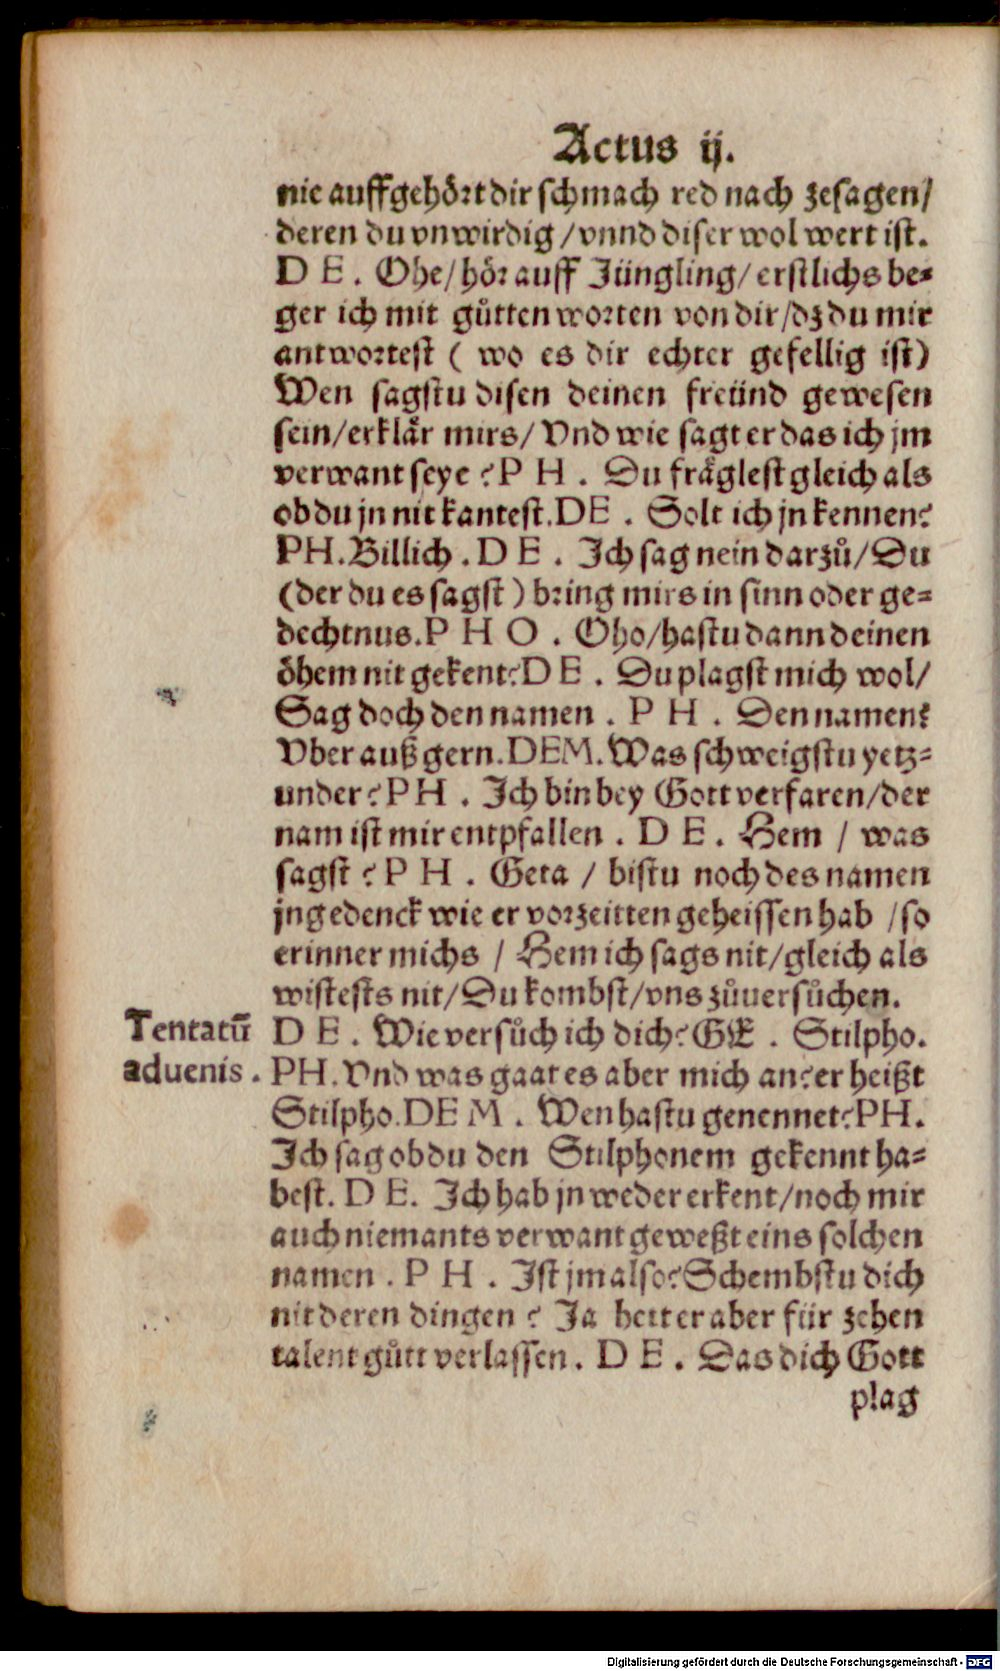 Actus ij.
nie auffgehört dir schmach red nach zesagen/
deren du vnwirdig/vnnd diser wol wert ist.
D E. Ohe/hör auff Jüngling/erstlichs be-
ger ich mit gůtten worten von dir/dz du mir
antwortest ( wo es dir echter gefellig ist)
Wen sagstu disen deinen freünd gewesen
sein/erklår mirs/Vnd wie sagt er das ich jm
verwant seye? P H. Du fråglest gleich als
ob du jn nit kantest. DE. Solt ich jn kennen?
PH. Billich. D E. Ich sag nein darzů/Du
(der du es sagst) bring mirs in sinn oder ge-
dechtnus. P H O. Oho/hastu dann deinen
öhem nit gekent? D E. Du plagst mich wol/
Sag doch den namen. P H. Den namen?
Vber auß gern. DEM. Was schweigstu yetz-
under? PH. Ich bin bey Gott verfaren/der
nam ist mir entpfallen. D E. Hem / was
sagst? P H. Geta / bistu noch des namen
jngedenck wie er vorzeitten geheissen hab /so
erinner michs / Hem ich sags nit/gleich als
wistests nit/Du kombst/vns zůuersůchen.
Tentatū D E. Wie versůch ich dich? GE. Stilpho.
aduenis. PH. Vnd was gaat es aber mich an? er heißt
Stilpho. DEM. Wen hastu genennet? PH.
Ich sag ob du den Stilphonem gekennt ha-
best. D E. Ich hab jn weder erkent/noch mir
auch niemants verwant geweßt eins solchen
namen. P H. Ist jm also? Schembstu dich
nit deren dingen? Ja hett er aber für zehen
talent gůtt verlassen. D E. Das dich Gott
plag
Digitalisierung gefördert durch die Deutsche Forschungsgemeinschaft - DFG